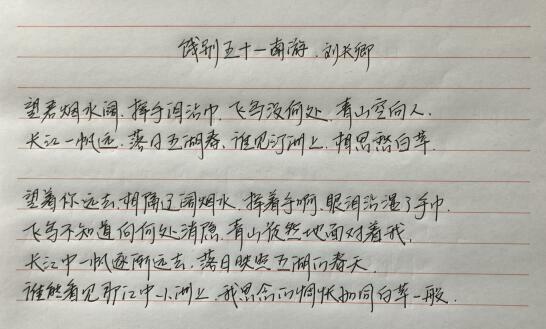 饯别王十一南游.刘长卿
望君烟水阔.挥手泪沾巾.飞鸟没何处.青山空向人.
长江一帆远.落日五湖春.谁见汀洲上.相思愁白苹.
望着你远去相隔辽阔烟水.挥着手啊.眼泪沾湿了手巾.
飞鸟不知道向何处消隐.青山茫然地面对着我.
长江中一帆逐渐远去.落日映照五湖的春天.
谁能看见那江中小洲上.我思念的惆怅如同白苹一般.